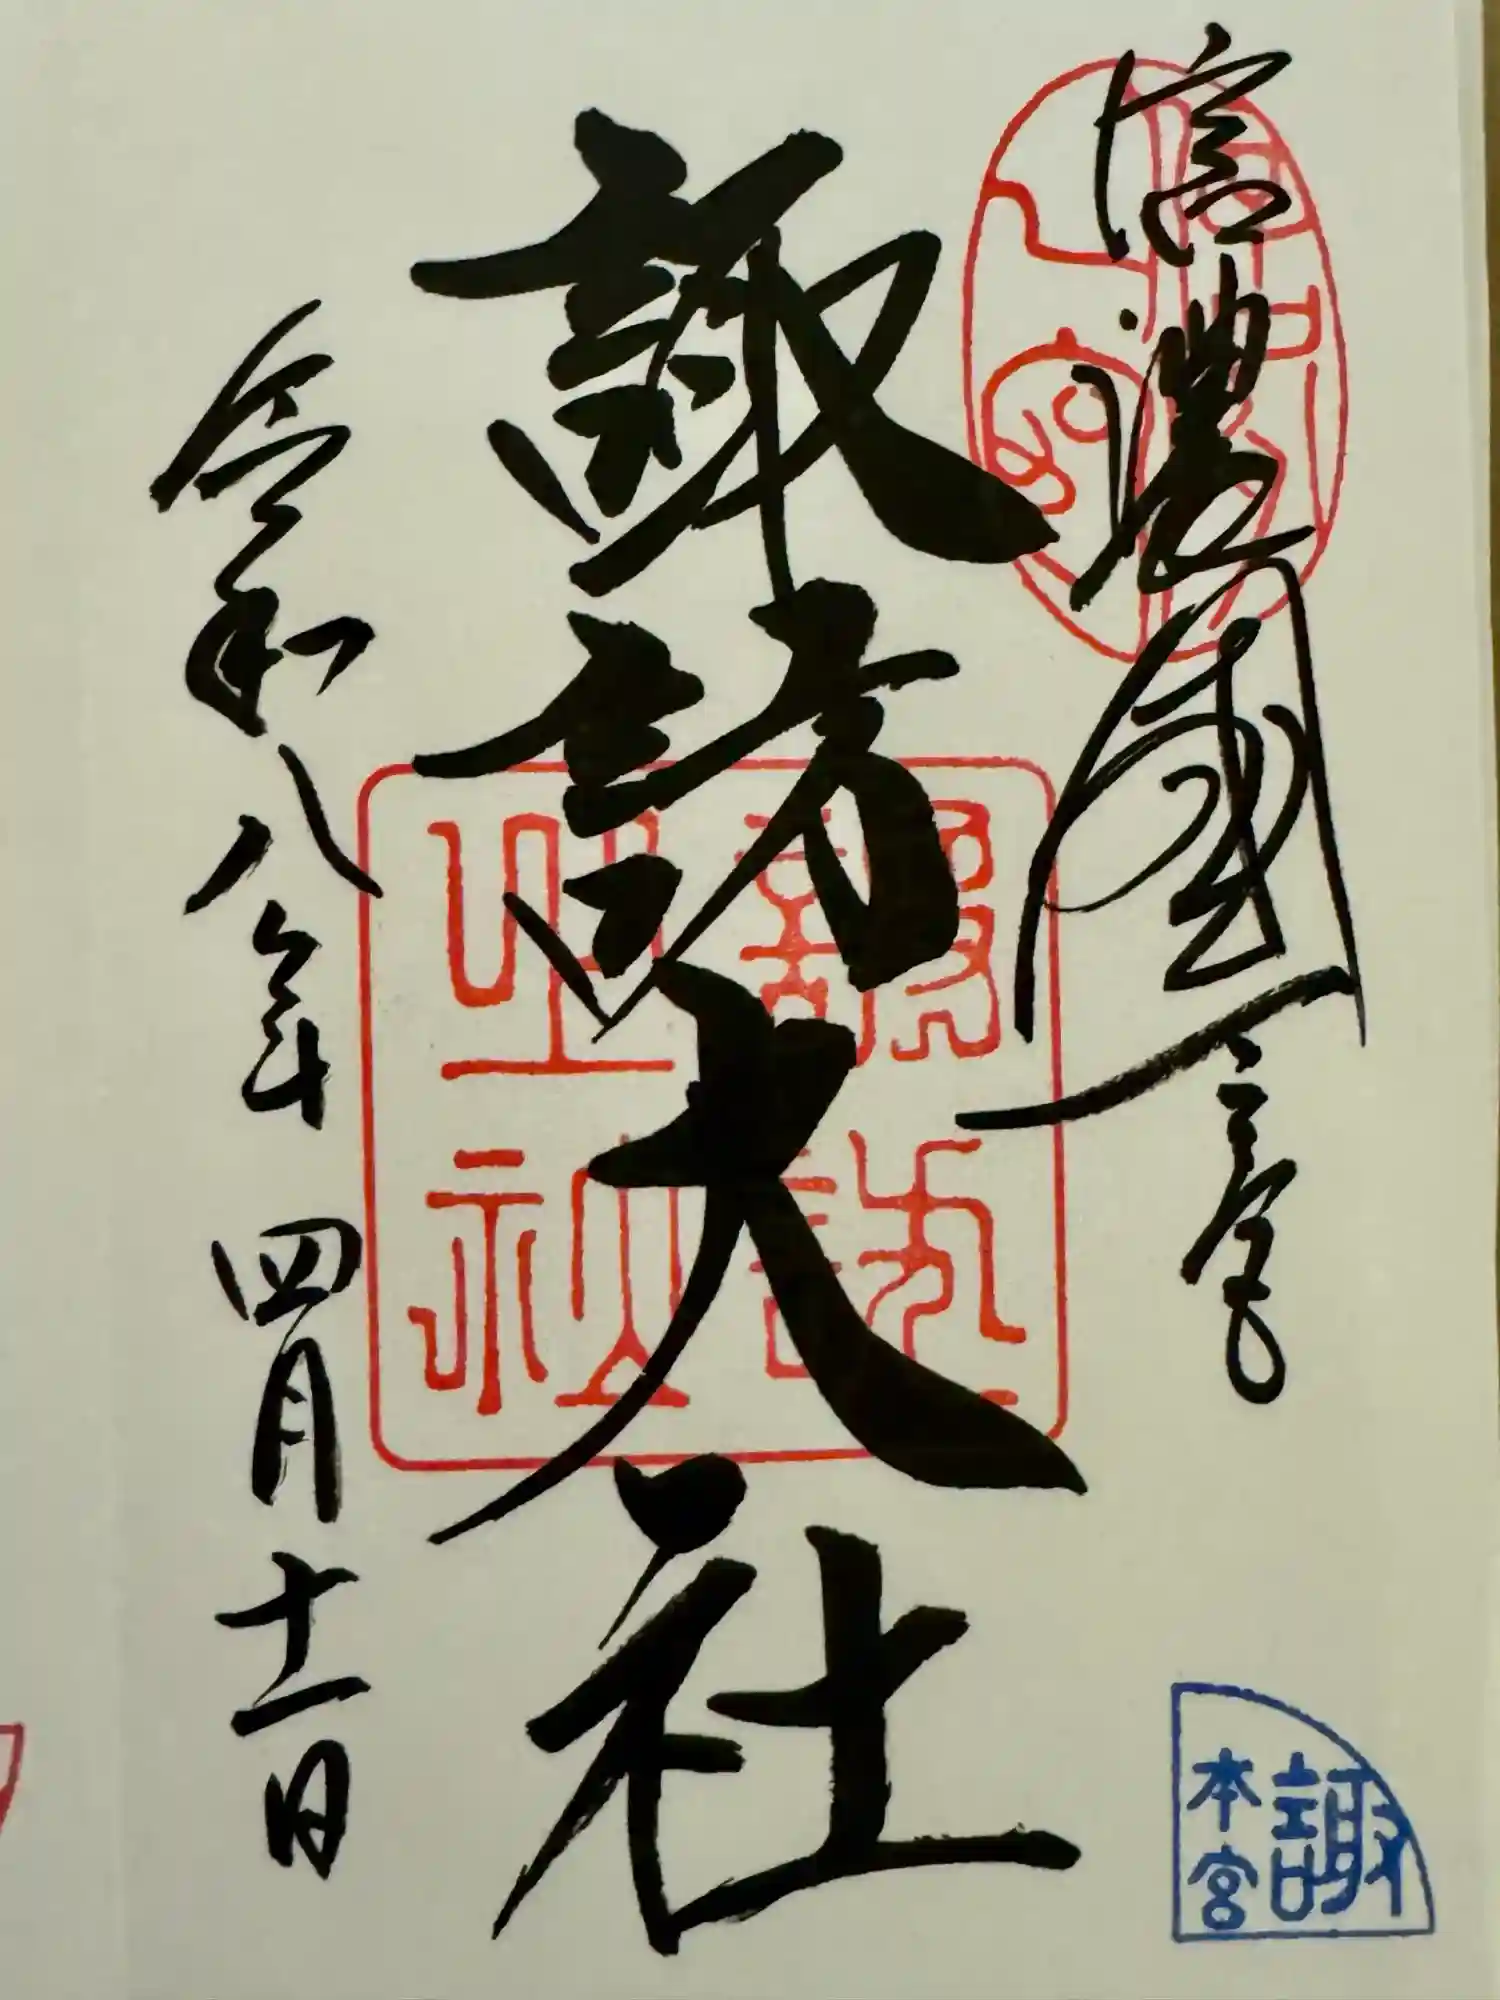 信濃國一之宮
諏訪大社
令和八年 四月十一日
諏訪
大社
諏
本宮